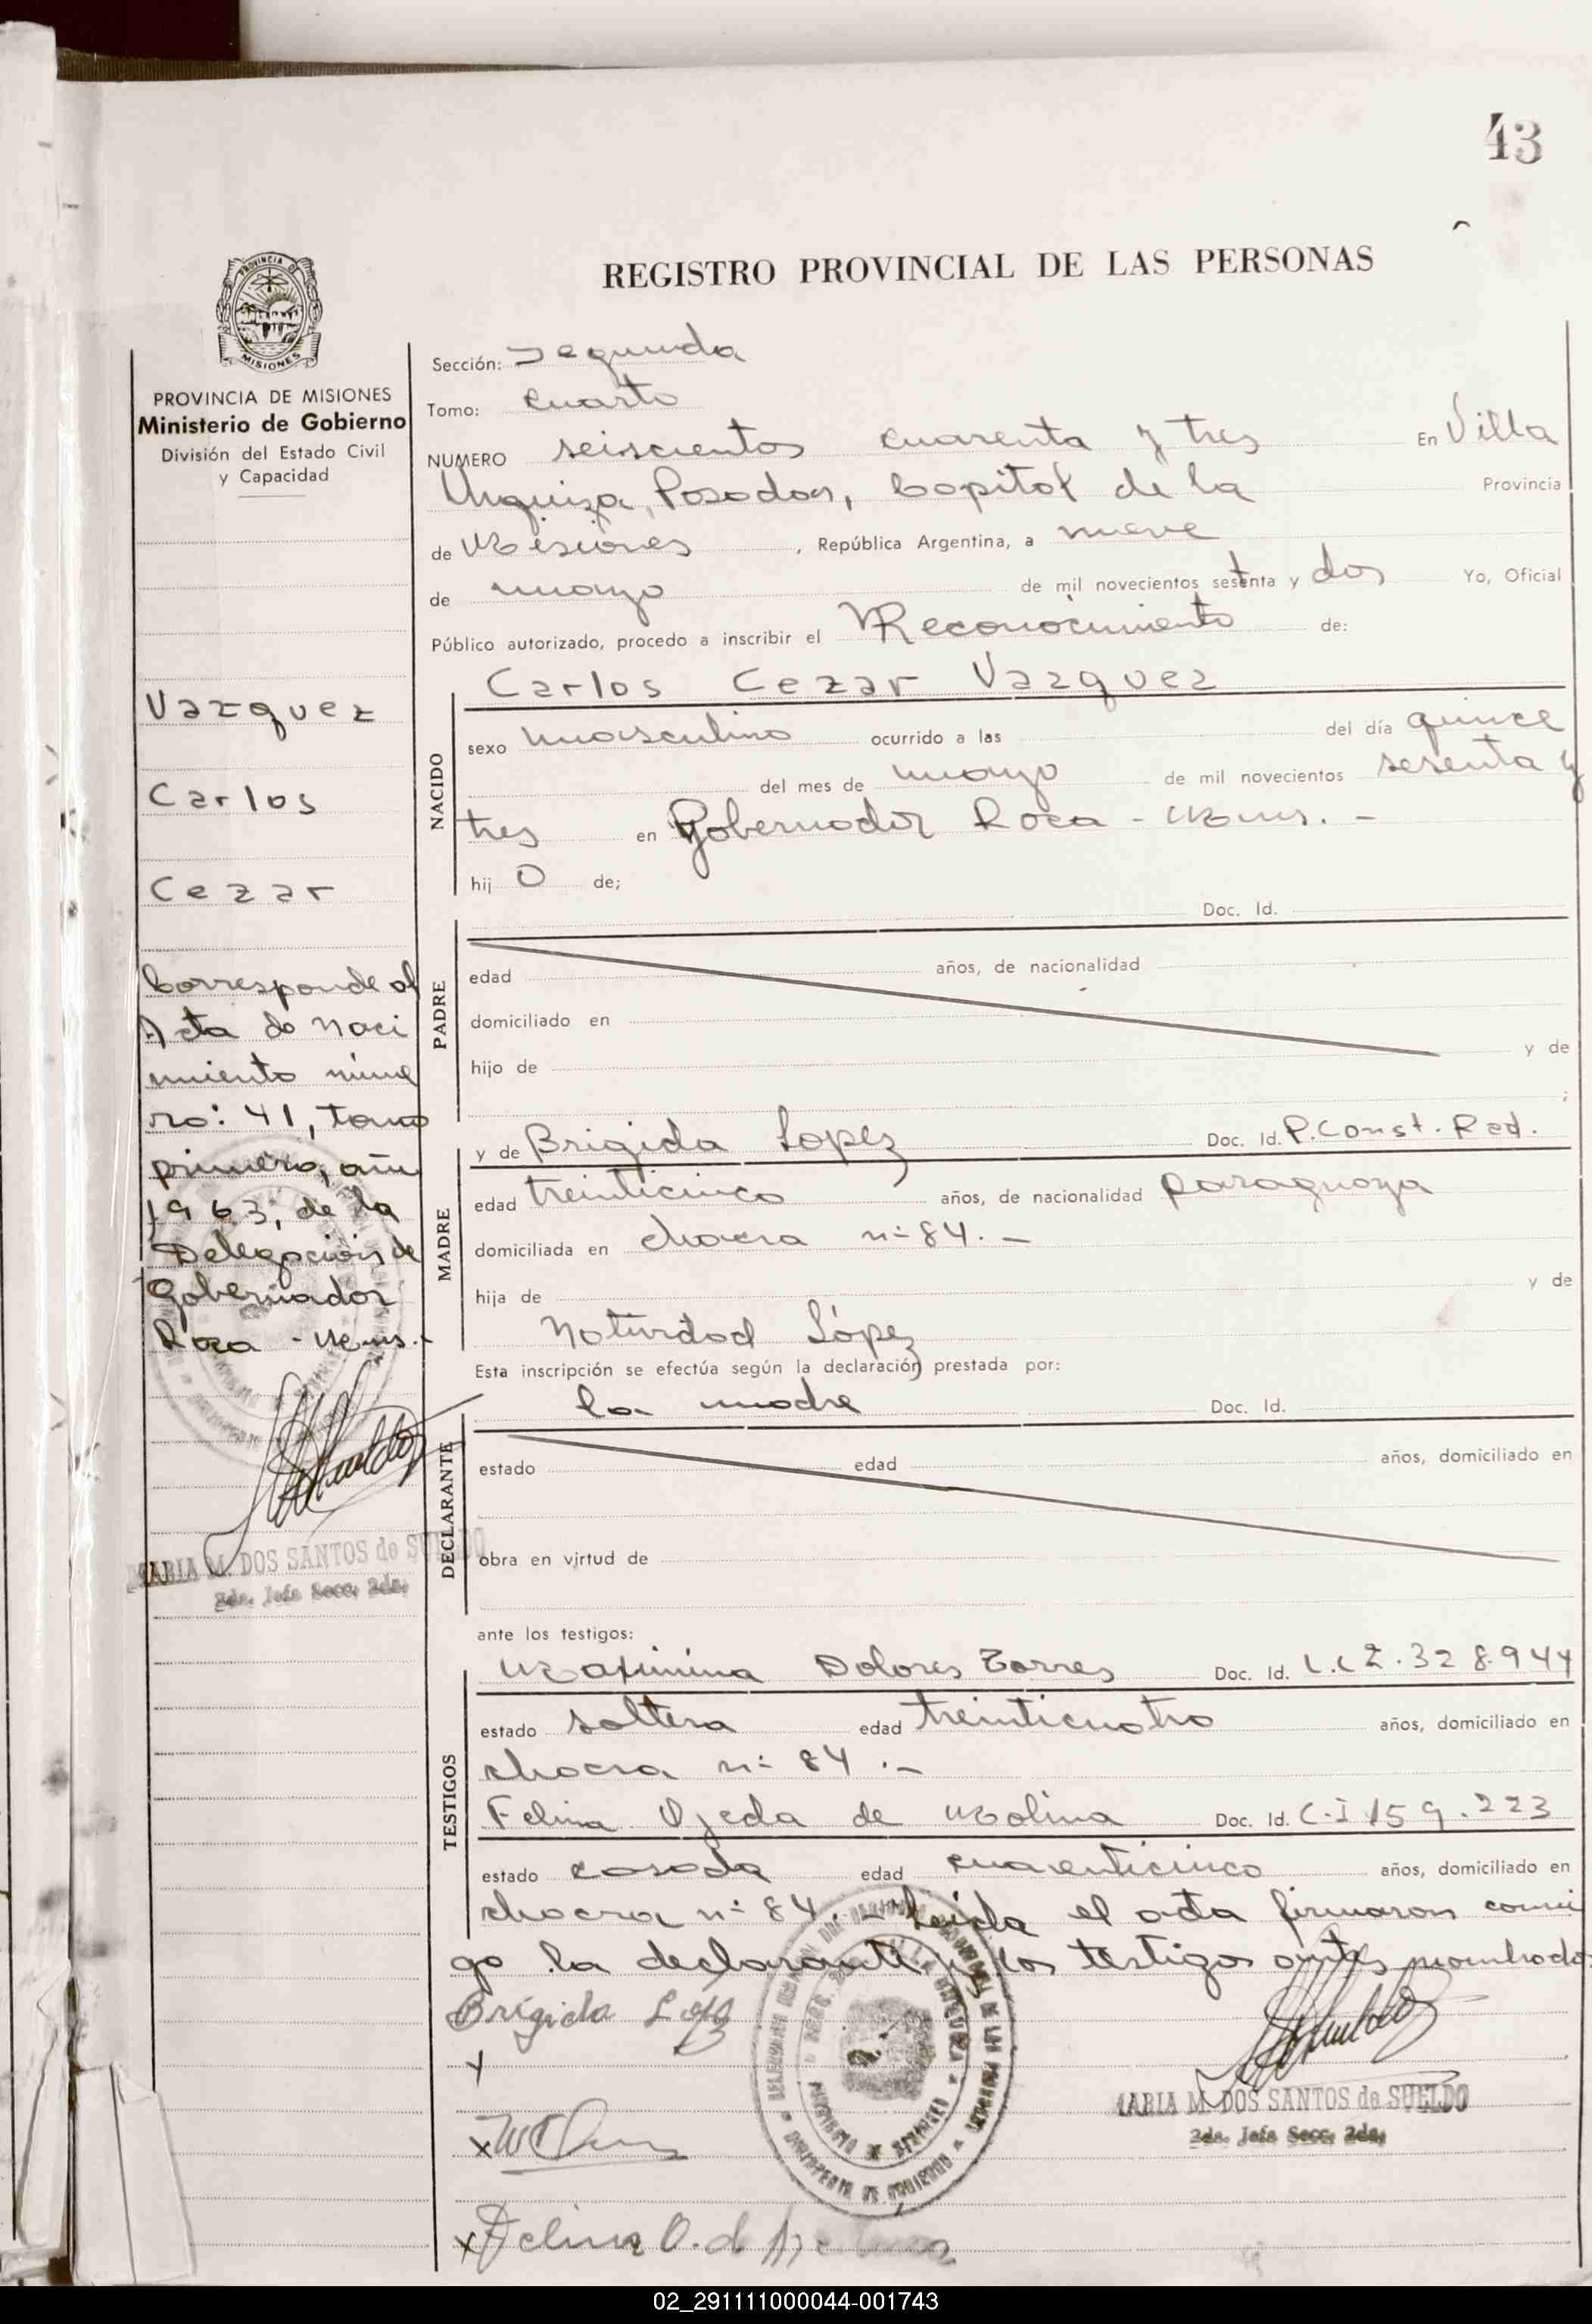 43
REGISTRO PROVINCIAL DE LAS PERSONAS
PROVINCIA DE MISIONES
Ministerio de Gobierno
División del Estado Civil
y Capacidad
Vazquez
Carlos
Cezar
Corresponde al
Acta de Naci
miento núme
ro: 41, tomo
primero, año
1963, de la
Delegación de
Gobernador
Roca - Mnes.-
MARIA M. DOS SANTOS de SUELDO
2da. Jefa Secc. 2da.
Sección: Segunda
Tomo: Cuarto
NUMERO seiscientos cuarenta y tres En Villa
Urquiza, Posadas, Capital de la Provincia
de Misiones, República Argentina, a nueve
de mayo de mil novecientos setenta y dos Yo, Oficial
Público autorizado, procedo a inscribir el Reconocimiento de:
Carlos Cezar Vazquez
NACIDO
sexo masculino ocurrido a las del día quince
del mes de mayo de mil novecientos sesenta y
tres en Gobernador Roca - Mnes. -
hij o de;
Doc. Id.
PADRE
edad años, de nacionalidad
domiciliado en
hijo de y de
;
y de Brigida Lopez Doc. Id. P. Const. Red.
MADRE
edad treinticinco años, de nacionalidad paraguaya
domiciliada en chacra n= 84. -
hija de y de
Natividad López
Esta inscripción se efectúa según la declaración prestada por:
la madre Doc. Id.
DECLARANTE
estado edad años, domiciliado en
obra en virtud de
ante los testigos:
Maximina Dolores Torres Doc. Id. L.C 2.328.944
TESTIGOS
estado soltera edad treinticuatro años, domiciliado en
chacra n= 84 .-
Felina Ojeda de Molina Doc. Id. C.I 159.223
estado casada edad cuarenticinco años, domiciliado en
chacra n= 84. - Leida el acta firmaron conmi
go la declarante y los testigos antes nombrados
Brígida Lopez
x
Felina O. d
MARIA M. DOS SANTOS de SUELDO
2da. Jefa Secc. 2da.
02_291111000044-001743